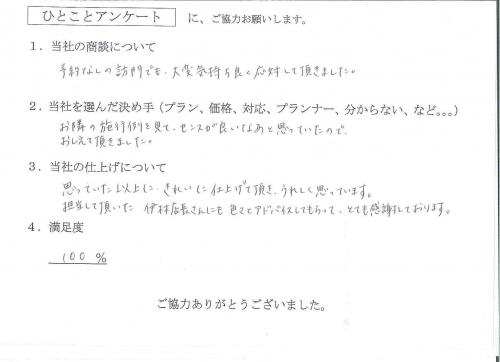 ひとことアンケート に、ご協力お願いします。
1．当社の商談について
予約なしの訪問でも、大変気持ち良く応対して頂きました。
2．当社を選んだ決め手（プラン、価格、対応、プランナー、分からない、など。。。）
お隣の施行例を見て、センスが良いなあと思っていたので、
おしえて頂きました。
3．当社の仕上げについて
思っていた以上に、きれいに仕上げて頂き、うれしく思っています。
担当して頂いた 伊林店長さんにも 色々とアドバイスしてもらって、とても感謝しております。
4．満足度
100 %
ご協力ありがとうございました。